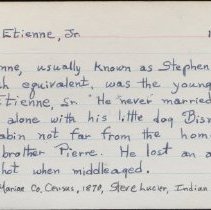 Etienne, Jr.
nne, usually known as Stephen
h equivalent, was the young
Etienne, Sr. He never married
alone with his little dog Bism
abin not far from the hom
brother Pierre. He lost an a
hot when middleaged.
Marion Co. Census, 1870, Steve Lucier, Indian